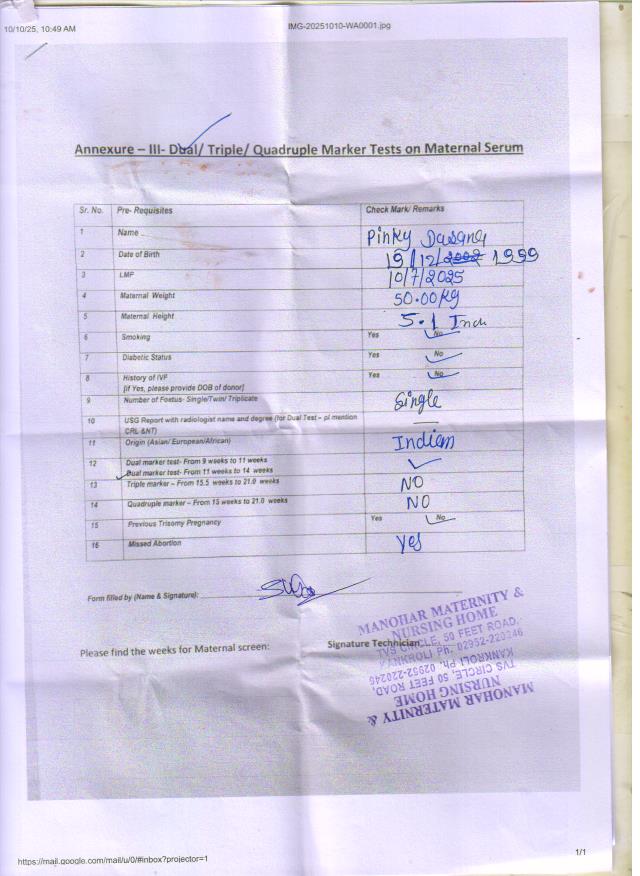 10/10/25, 10:49 AM
IMG-20251010-WA0001.jpg
Annexure – III- Dual/ Triple/ Quadruple Marker Tests on Maternal Serum
Sr. No. Pre- Requisites Check Mark/ Remarks
1 Name Pinky
2 Date of Birth 19/12/2002 1999
3 LMP 10/7/2025
4 Maternal Weight 50.00 kg
5 Maternal Height 5.1 Inch
6 Smoking Yes No
7 Diabetic Status Yes No
8 History of IVF Yes No
[if Yes, please provide DOB of donor]
9 Number of Foetus- Single/Twin/ Triplicate Single
10 USG Report with radiologist name and degree (for Dual Test – pl mention
CRL &NT)
11 Origin (Asian/ European/African) Indian
12 Dual marker test- From 9 weeks to 11 weeks
Dual marker test- From 11 weeks to 14 weeks
13 Triple marker – From 15.5 weeks to 21.0 weeks NO
14 Quadruple marker – From 15 weeks to 21.0 weeks NO
15 Previous Trisomy Pregnancy Yes No
16 Missed Abortion Yes
Form filled by (Name & Signature):
Please find the weeks for Maternal screen: Signature Technician
MANOHAR MATERNITY &
NURSING HOME
TVS CIRCLE, 50 FEET ROAD,
KANKROLI Ph. 02952-220246
MANOHAR MATERNITY &
NURSING HOME
TVS CIRCLE, 50 FEET ROAD,
KANKROLI Ph. 02952-220246
https://mail.google.com/mail/u/0/#inbox?projector=1
1/1